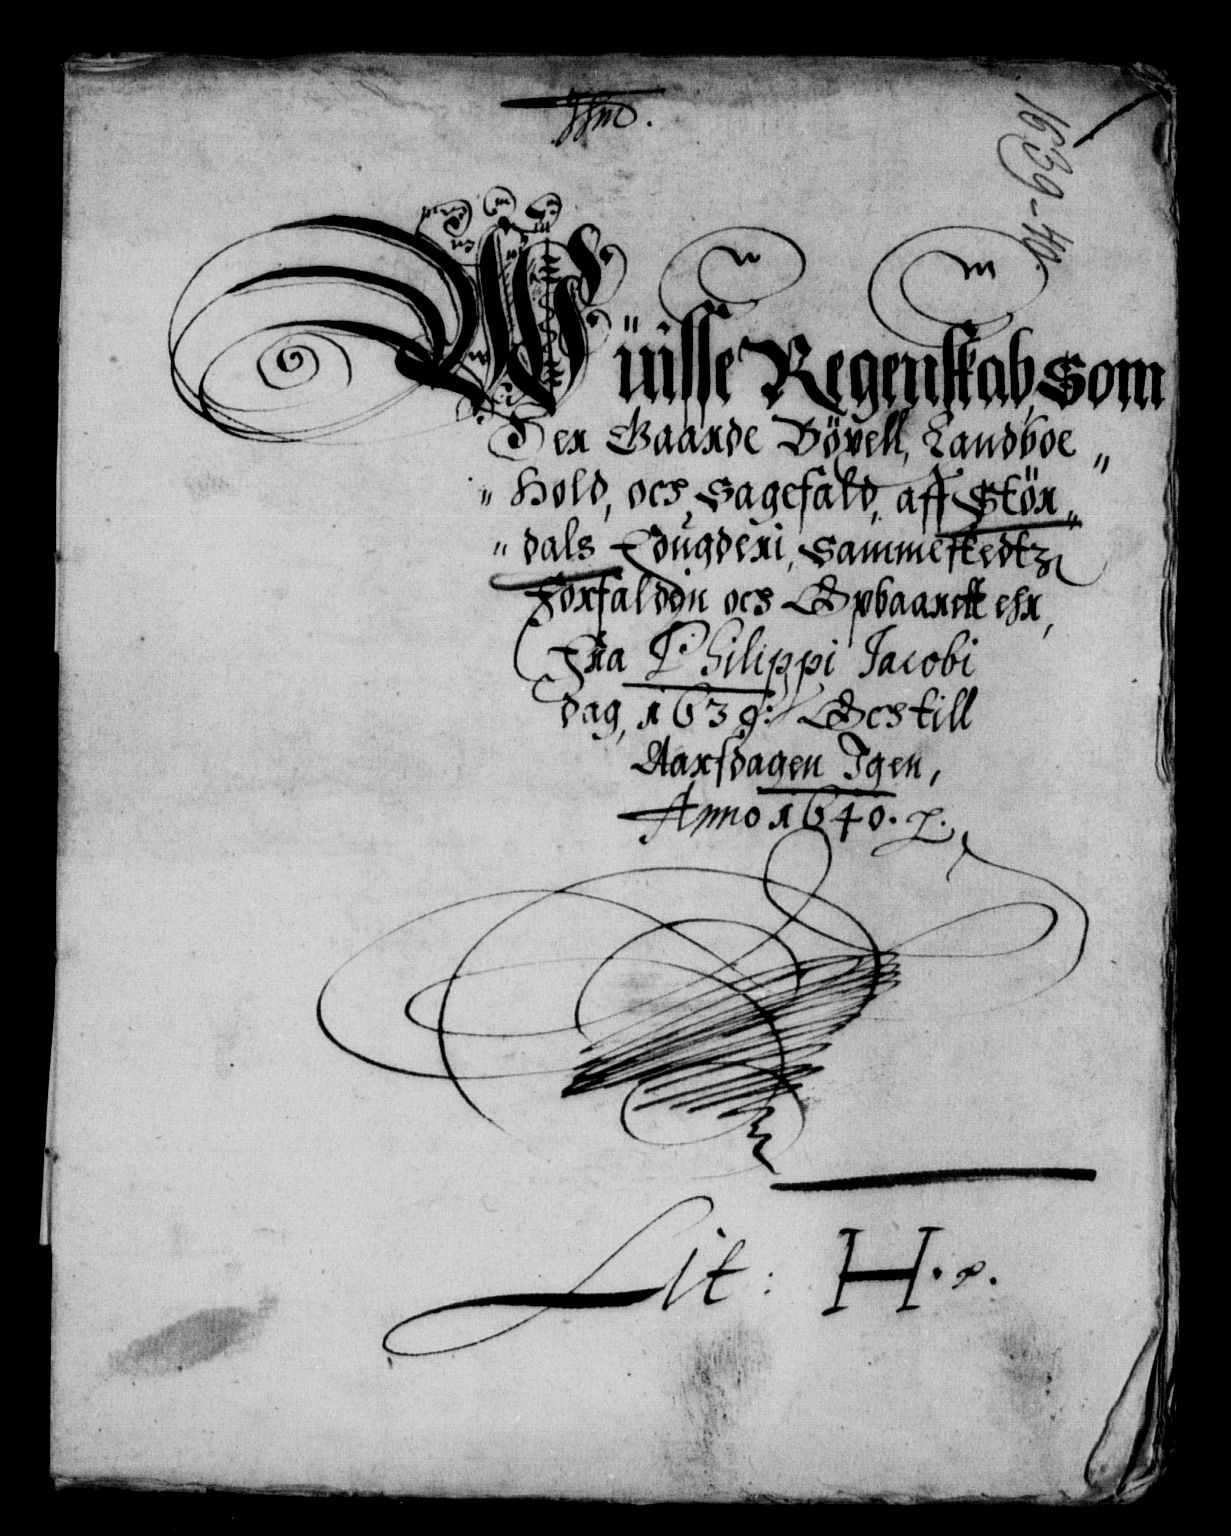 1639-40.
Wüisse Regenskab, Som
Der Gaarde Böxell, Landboe „
„ Hold, ocs, Sagefald, aff Stör„
„ dals Fougderi, Sammestedtz
Forfalden ocs Opbaarett ehr,
Fra Philippi Jacobi
dag, 1639: Ocs till
Aarsdagen Igen,
Anno 1640.
Lit: H.